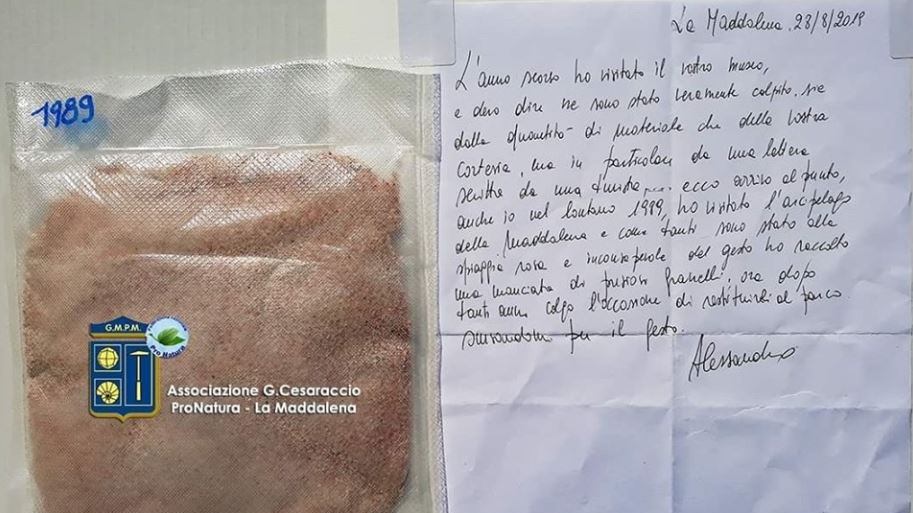 1989
G.M.P.M.
Pro Natura
Associazione G.Cesaraccio
ProNatura - La Maddalena
La Maddalena, 28/8/2019
L'anno scorso ho visitato il vostro museo,
e devo dire ne sono stato veramente colpito. sia
dalla quantità di materiale che della vostra
cortesia, ma in particolare da una lettera
scritta da una turista.... ecco arrivo al punto,
anche io nel lontano 1989, ho visitato l'arcipelago
della Maddalena e come tanti sono stato alla
spiaggia rosa e inconsapevole del gesto ho raccolto
una manciata di preziosi granelli, ora dopo
tanti anni colgo l'occasione di restituirli al parco
scusandomi per il gesto.
Alessandro